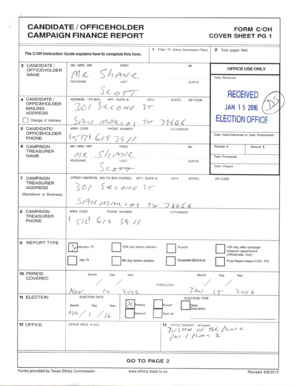 CANDIDATE / OFFICEHOLDER FORM C/OH
CAMPAIGN FINANCE REPORT COVER SHEET PG 1
The C/OH Instruction Guide explains how to complete this form.
1 Filer ID (Ethics Commission Filers) 2 Total pages filed:
3 CANDIDATE / OFFICEHOLDER NAME
MS / MRS / MR FIRST MI
Mr Shane
NICKNAME LAST SUFFIX
Scott
OFFICE USE ONLY
Date Received
RECEIVED
JAN 15 2016
ELECTION OFFICE
4 CANDIDATE / OFFICEHOLDER MAILING ADDRESS
Change of Address
ADDRESS / PO BOX; APT / SUITE #; CITY; STATE; ZIP CODE
301 Second St
San Marcos TX 78666
5 CANDIDATE / OFFICEHOLDER PHONE
AREA CODE PHONE NUMBER EXTENSION
(512) 619 3911
Date Hand-delivered or Date Postmarked
6 CAMPAIGN TREASURER NAME
MS / MRS / MR FIRST MI
Mr Shane
NICKNAME LAST SUFFIX
Scott
Receipt # Amount $
Date Processed
Date Imaged
7 CAMPAIGN TREASURER ADDRESS
(Residence or Business)
STREET ADDRESS (NO PO BOX PLEASE); APT / SUITE #; CITY; STATE; ZIP CODE
301 Second St
San Marcos TX 78666
8 CAMPAIGN TREASURER PHONE
AREA CODE PHONE NUMBER EXTENSION
(512) 619 3911
9 REPORT TYPE
January 15 30th day before election Runoff 15th day after campaign treasurer appointment (Officeholder Only)
July 15 8th day before election Exceeded $500 limit Final Report (Attach C/OH - FR)
10 PERIOD COVERED
Month Day Year Month Day Year
THROUGH
11 ELECTION
ELECTION DATE ELECTION TYPE
Month Day Year Primary Runoff Other Description
General Special
12 OFFICE OFFICE HELD (if any) 13 OFFICE SOUGHT (if known)
Justice of the Peace
Pct 1 Place 2
GO TO PAGE 2
Forms provided by Texas Ethics Commission www.ethics.state.tx.us Revised 9/8/2015